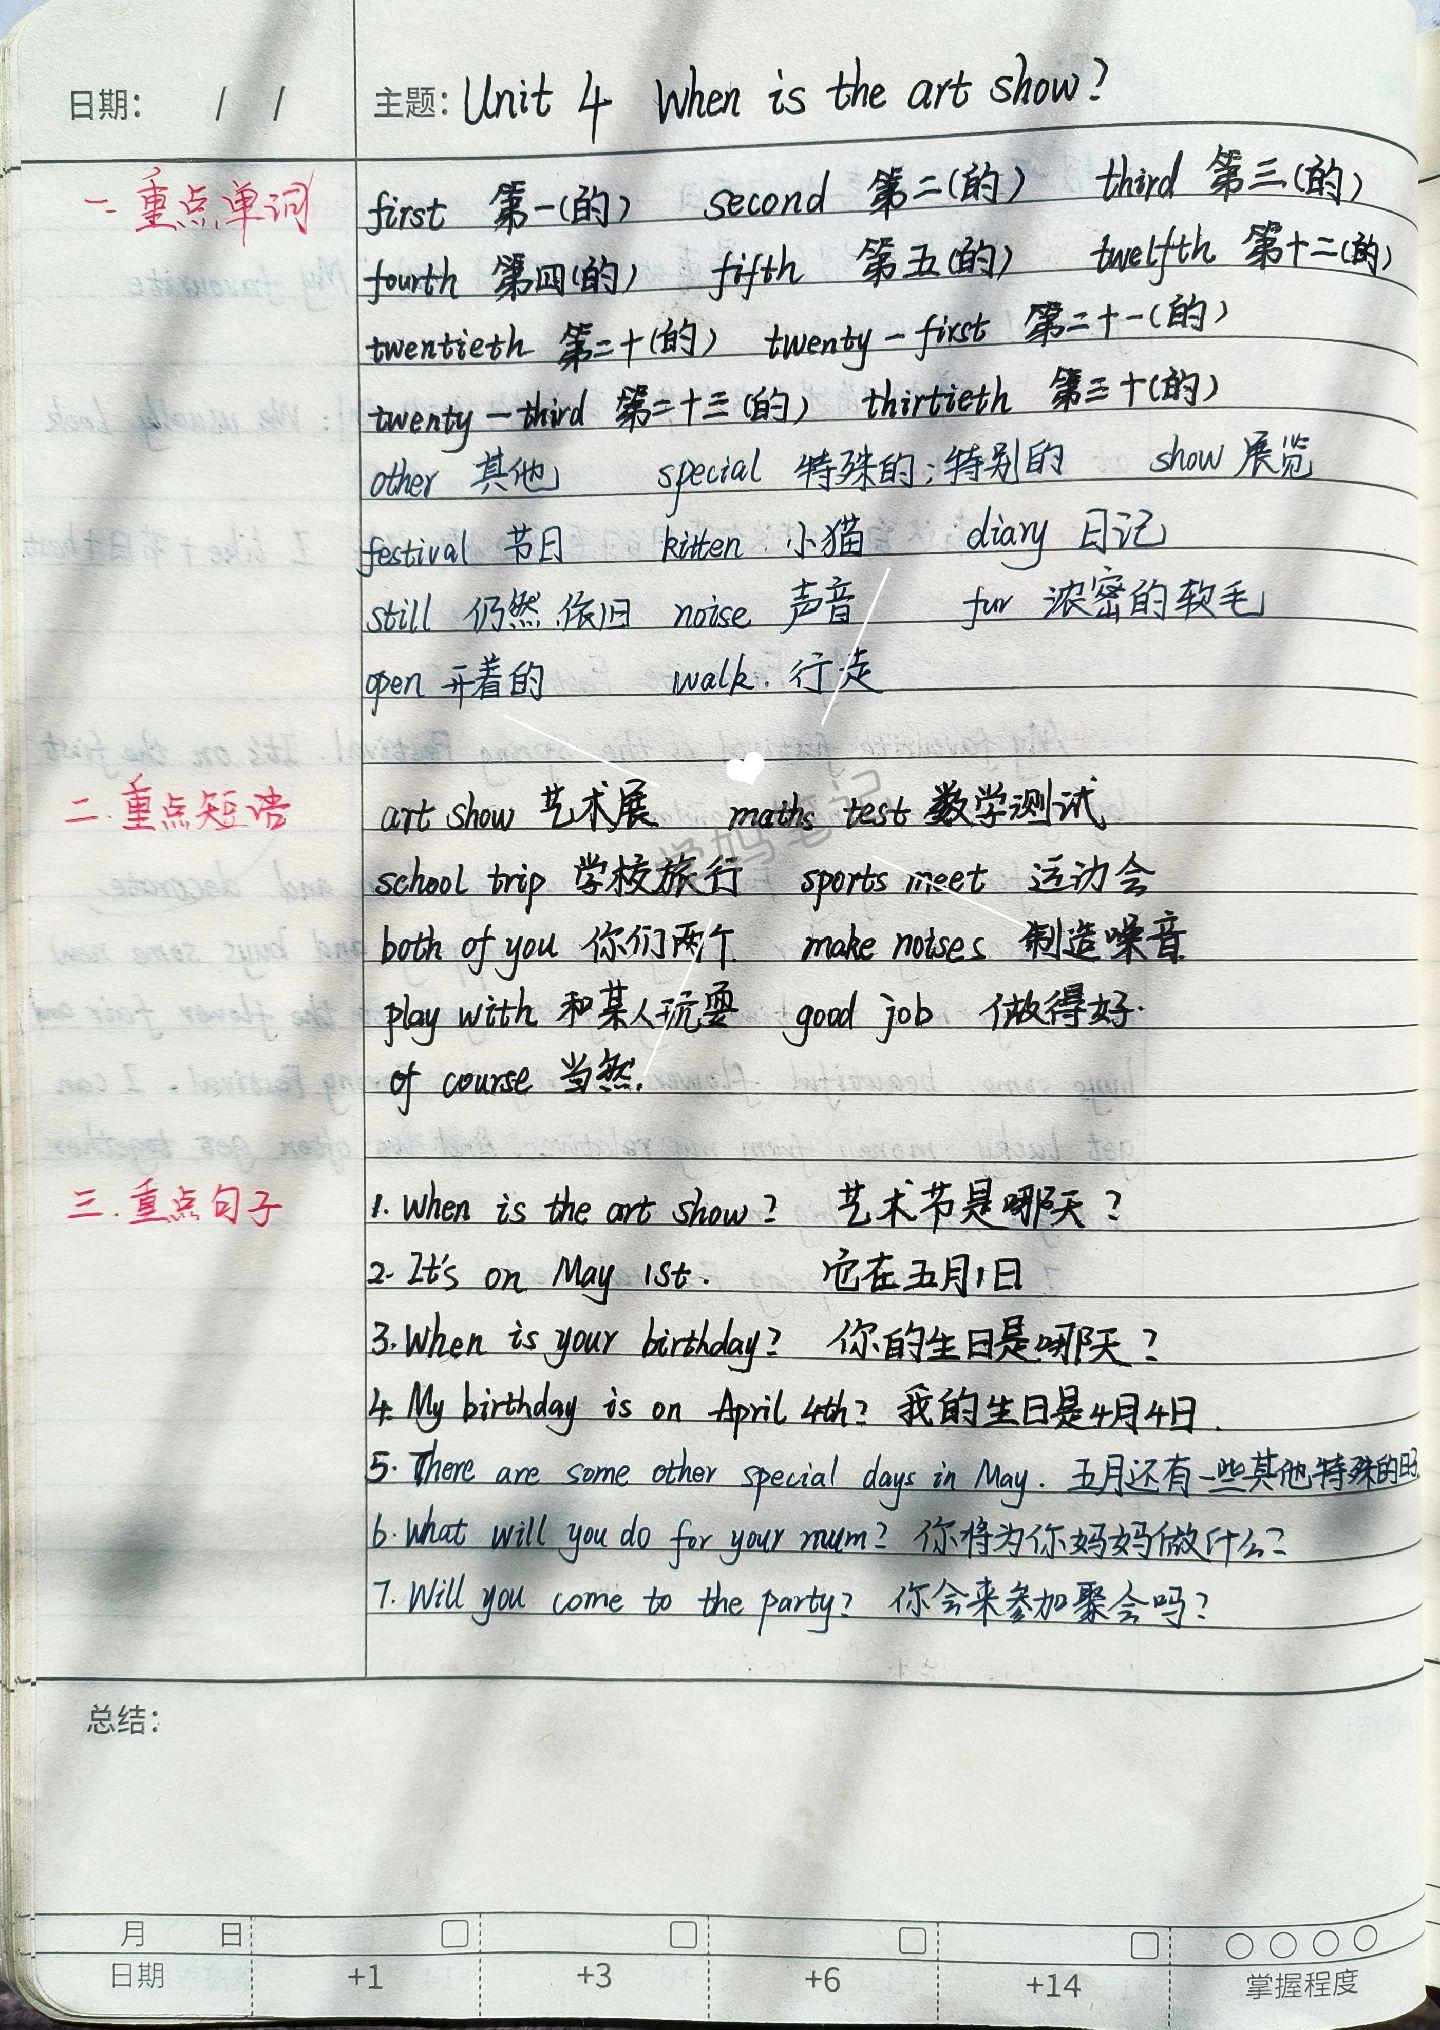 日期： / / 主题：Unit 4 When is the art show?
一.重点单词 first 第一(的) second 第二(的) third 第三(的)
fourth 第四(的) fifth 第五(的) twelfth 第十二(的)
twentieth 第二十(的) twenty-first 第二十一(的)
twenty-third 第二十三(的) thirtieth 第三十(的)
other 其他 special 特殊的;特别的 show 展览
festival 节日 kitten 小猫 diary 日记
still 仍然,依旧 noise 声音 fur 浓密的软毛
open 开着的 walk. 行走
二.重点短语 art show 艺术展 maths test 数学测试
school trip 学校旅行 sports meet 运动会
both of you 你们两个 make noises 制造噪音
play with 和某人玩耍 good job 做得好.
of course 当然.
学妈笔记
三.重点句子 1. When is the art show? 艺术节是哪天?
2. It's on May 1st. 它在五月1日
3. When is your birthday? 你的生日是哪天?
4. My birthday is on April 4th? 我的生日是4月4日.
5. There are some other special days in May. 五月还有一些其他特殊的日子.
6. What will you do for your mum? 你将为你妈妈做什么?
7. Will you come to the party? 你会来参加聚会吗?
总结：
月 日
日期 +1 +3 +6 +14 掌握程度